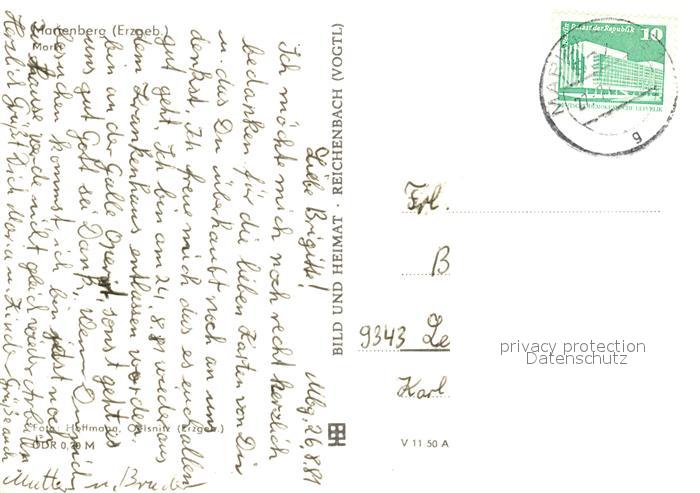 Marienberg (Erzgeb.)
Markt
Mbg. 26.8.81
Liebe Brigitte!
Ich möcht mich noch recht herzlich
bedanken für die lieben Karten von Dir
u. das Du überhaubt noch an uns
denkst. Ich freue mich das es euch allen
gut geht. Ich bin am 24.8.81 wieder aus
dem Krankenhaus entlassen worden.
bin an der Galle Operirt, sonst geht es
uns gut Gott sei Dank, wenn Du mich
besuchen kommst ich bin jetzt noch
zu Hause werde nicht gleich wieder Arbeiten
Herzlich Grüßt Dich Maria u. Kinder Grüße auch
Mutter u. Bruder
Foto: Hoffmann, Oelsnitz (Erzgeb.)
DDR 0,20 M
BILD UND HEIMAT · REICHENBACH (VOGTL)
V 11 50 A
Palast der Republik
10
DEUTSCHE DEMOKRATISCHE REPUBLIK
g
Frl.
B
9343 Le
Karl
privacy protection
Datenschutz